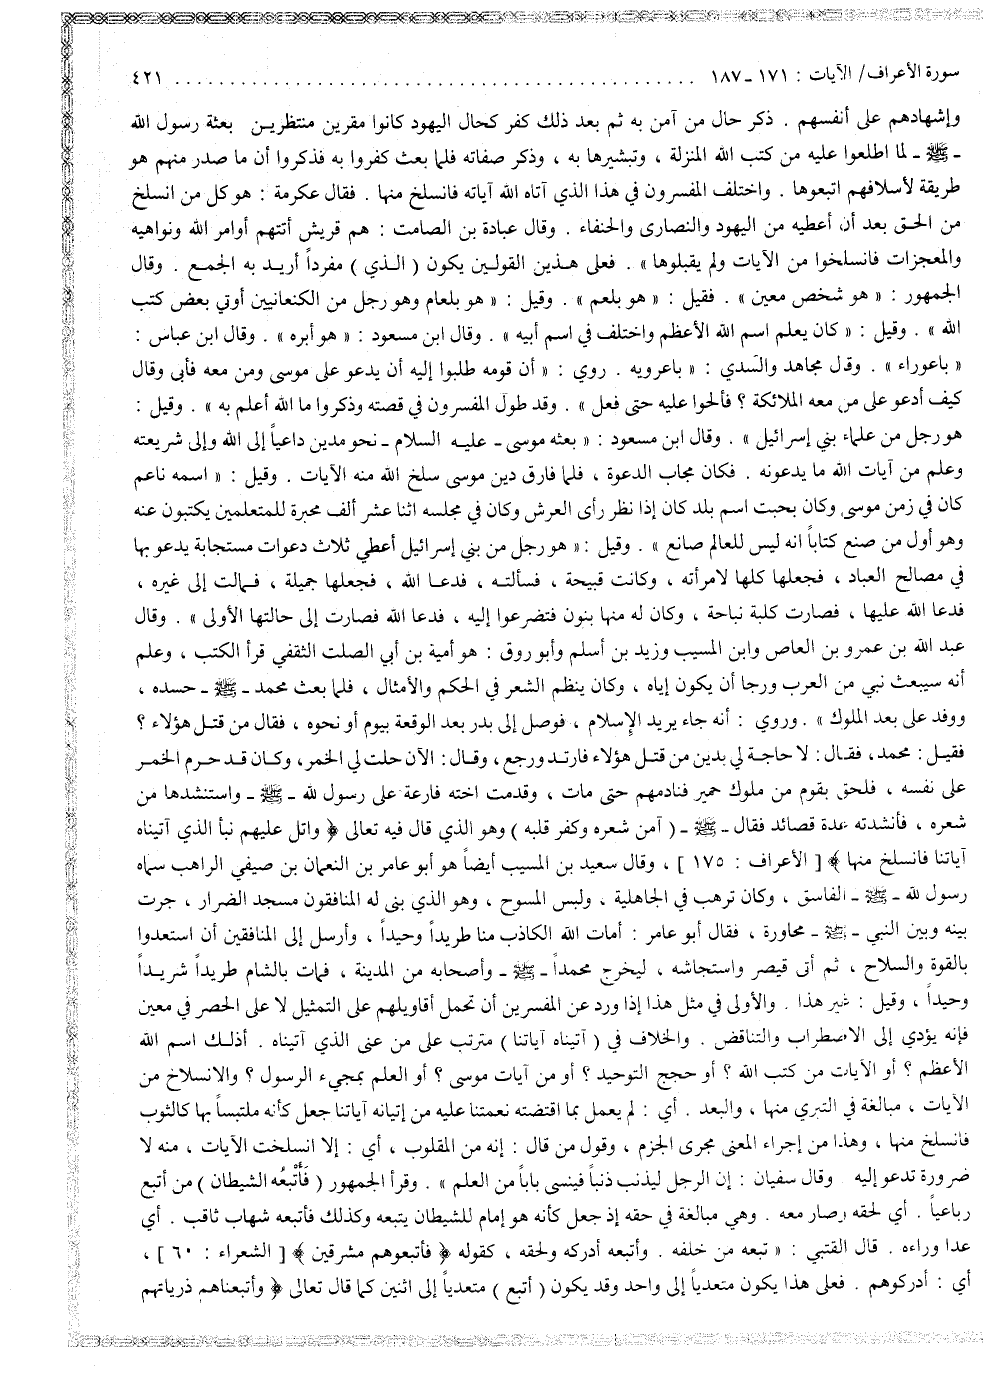 سورة الأعراف/ الآيات : ١٧١ ـ ١٨٧ . . . . . . . . . . . . . . . . . . . . . . . . . . . . . . . . . . . . . . . . . . . . . ٤٢١
وإشهادهم على أنفسهم . ذكر حال من آمن به ثم بعد ذلك كفر كحال اليهود كانوا مقرين منتظرين بعثة رسول الله
ـ ﷺ ـ لما اطلعوا عليه من كتب الله المنزلة ، وتبشيرها به ، وذكر صفاته فلما بعث كفروا به فذكروا أن ما صدر منهم هو
طريقة لأسلافهم اتبعوها . واختلف المفسرون في هذا الذي آتاه الله آياته فانسلخ منها . فقال عكرمة : هو كل من انسلخ
من الحق بعد أن أعطيه من اليهود والنصارى والحنفاء . وقال عبادة بن الصامت : هم قريش أتتهم أوامر الله ونواهيه
والمعجزات فانسلخوا من الآيات ولم يقبلوها » . فعلى هذين القولين يكون ( الذي ) مفرداً أريد به الجمع . وقال
الجمهور : « هو شخص معين » . فقيل : « هو بلعم » . وقيل : « هو بلعام وهو رجل من الكنعانيين أوتي بعض كتب
الله » . وقيل : « كان يعلم اسم الله الأعظم واختلف في اسم أبيه » . وقال ابن مسعود : « هو أبره » . وقال ابن عباس :
« باعوراء » . وقال مجاهد والسدي : « باعرويه . روي : « أن قومه طلبوا إليه أن يدعو على موسى ومن معه فأبى وقال
كيف أدعو على من معه الملائكة ؟ فألحوا عليه حتى فعل » . وقد طول المفسرون في قصته وذكروا ما الله أعلم به » . وقيل :
هو رجل من علماء بني إسرائيل » . وقال ابن مسعود : « بعثه موسى ـ عليه السلام ـ نحو مدين داعياً إلى الله وإلى شريعته
وعلم من آيات الله ما يدعو به . فكان مجاب الدعوة ، فلما فارق دين موسى سلخ الله منه الآيات . وقيل : « اسمه ناعم
كان في زمن موسى وكان بحبت اسم بلد كان إذا نظر رأى العرش وكان في مجلسه اثنا عشر ألف محبرة للمتعلمين يكتبون عنه
وهو أول من صنع كتاباً انه ليس للعالم صانع » . وقيل : « هو رجل من بني إسرائيل أعطي ثلاث دعوات مستجابة يدعو بها
في مصالح العباد ، فجعلها كلها لامرأته ، وكانت قبيحة ، فسألته ، فدعا الله ، فجعلها جميلة ، فمالت إلى غيره ،
فدعا الله عليها ، فصارت كلبة نباحة ، وكان له منها بنون فتضرعوا إليه ، فدعا الله فصارت إلى حالتها الأولى » . وقال
عبد الله بن عمرو بن العاص وابن المسيب وزيد بن أسلم وأبو روق : هو أمية بن أبي الصلت الثقفي قرأ الكتب ، وعلم
أنه سيبعث نبي من العرب ورجا أن يكون إياه ، وكان ينظم الشعر في الحكم والأمثال ، فلما بعث محمد ـ ﷺ ـ حسده ،
ووفد على بعد الملوك » . وروي : أنه جاء يريد الإسلام ، فوصل إلى بدر بعد الوقعة بيوم أو نحوه ، فقال من قتل هؤلاء ؟
فقيل : محمد ، فقال : لا حاجة لي بدين من قتل هؤلاء فارتد ورجع ، وقال : الآن حلت لي الخمر ، وكان قد حرم الخمر
على نفسه ، فلحق بقوم من ملوك حمير فنادمهم حتى مات ، وقدمت اخته فارعة على رسول لله ـ ﷺ ـ واستنشدها من
شعره ، فأنشدته عدة قصائد فقال ـ ﷺ ـ ( آمن شعره وكفر قلبه ) وهو الذي قال فيه تعالى ﴿ واتل عليهم نبأ الذي آتيناه
آياتنا فانسلخ منها ﴾ [ الأعراف : ١٧٥ ] ، وقال سعيد بن المسيب أيضاً هو أبو عامر بن النعمان بن صيفي الراهب سماه
رسول لله ـ ﷺ ـ الفاسق ، وكان ترهب في الجاهلية ، ولبس المسوح ، وهو الذي بنى له المنافقون مسجد الضرار ، جرت
بينه وبين النبي ـ ﷺ ـ محاورة ، فقال أبو عامر : أمات الله الكاذب منا طريداً وحيداً ، وأرسل إلى المنافقين أن استعدوا
بالقوة والسلاح ، ثم أتى قيصر واستجاشه ، ليخرج محمداً ـ ﷺ ـ وأصحابه من المدينة ، فمات بالشام طريداً شريداً
وحيداً ، وقيل : غير هذا . والأولى في مثل هذا إذا ورد عن المفسرين أن تحمل أقاويلهم على التمثيل لا على الحصر في معين
فإنه يؤدي إلى الاضطراب والتناقض . والخلاف في ( آتيناه آياتنا ) مترتب على من عنى الذي آتيناه . أذلك اسم الله
الأعظم ؟ أو الآيات من كتب الله ؟ أو حجج التوحيد ؟ أو من آيات موسى ؟ أو العلم بمجيء الرسول ؟ والانسلاخ من
الآيات ، مبالغة في التبري منها ، والبعد . أي : لم يعمل بما اقتضته نعمتنا عليه من إتيانه آياتنا جعل كأنه ملتبساً بها كالثوب
فانسلخ منها ، وهذا من إجراء المعنى مجرى الجزم ، وقول من قال : إنه من المقلوب ، أي : إلا انسلخت الآيات ، منه لا
ضرورة تدعو إليه وقال سفيان : إن الرجل ليذنب ذنباً فينسى باباً من العلم » . وقرأ الجمهور ( فَأَتْبعُه الشيطان ) من أتبع
رباعياً . أي لحقه رصار معه . وهي مبالغة في حقه إذ جعل كأنه هو إمام للشيطان يتبعه وكذلك فأتبعه شهاب ثاقب . أي
عدا وراءه . قال القتبي : « تبعه من خلفه . وأتبعه أدركه ولحقه ، كقوله ﴿ فأتبعوهم مشرقين ﴾ [ الشعراء : ٦٠ ] ،
أي : أدركوهم . فعلى هذا يكون متعدياً إلى واحد وقد يكون ( أتبع ) متعدياً إلى اثنين كما قال تعالى ﴿ وأتبعناهم ذرياتهم